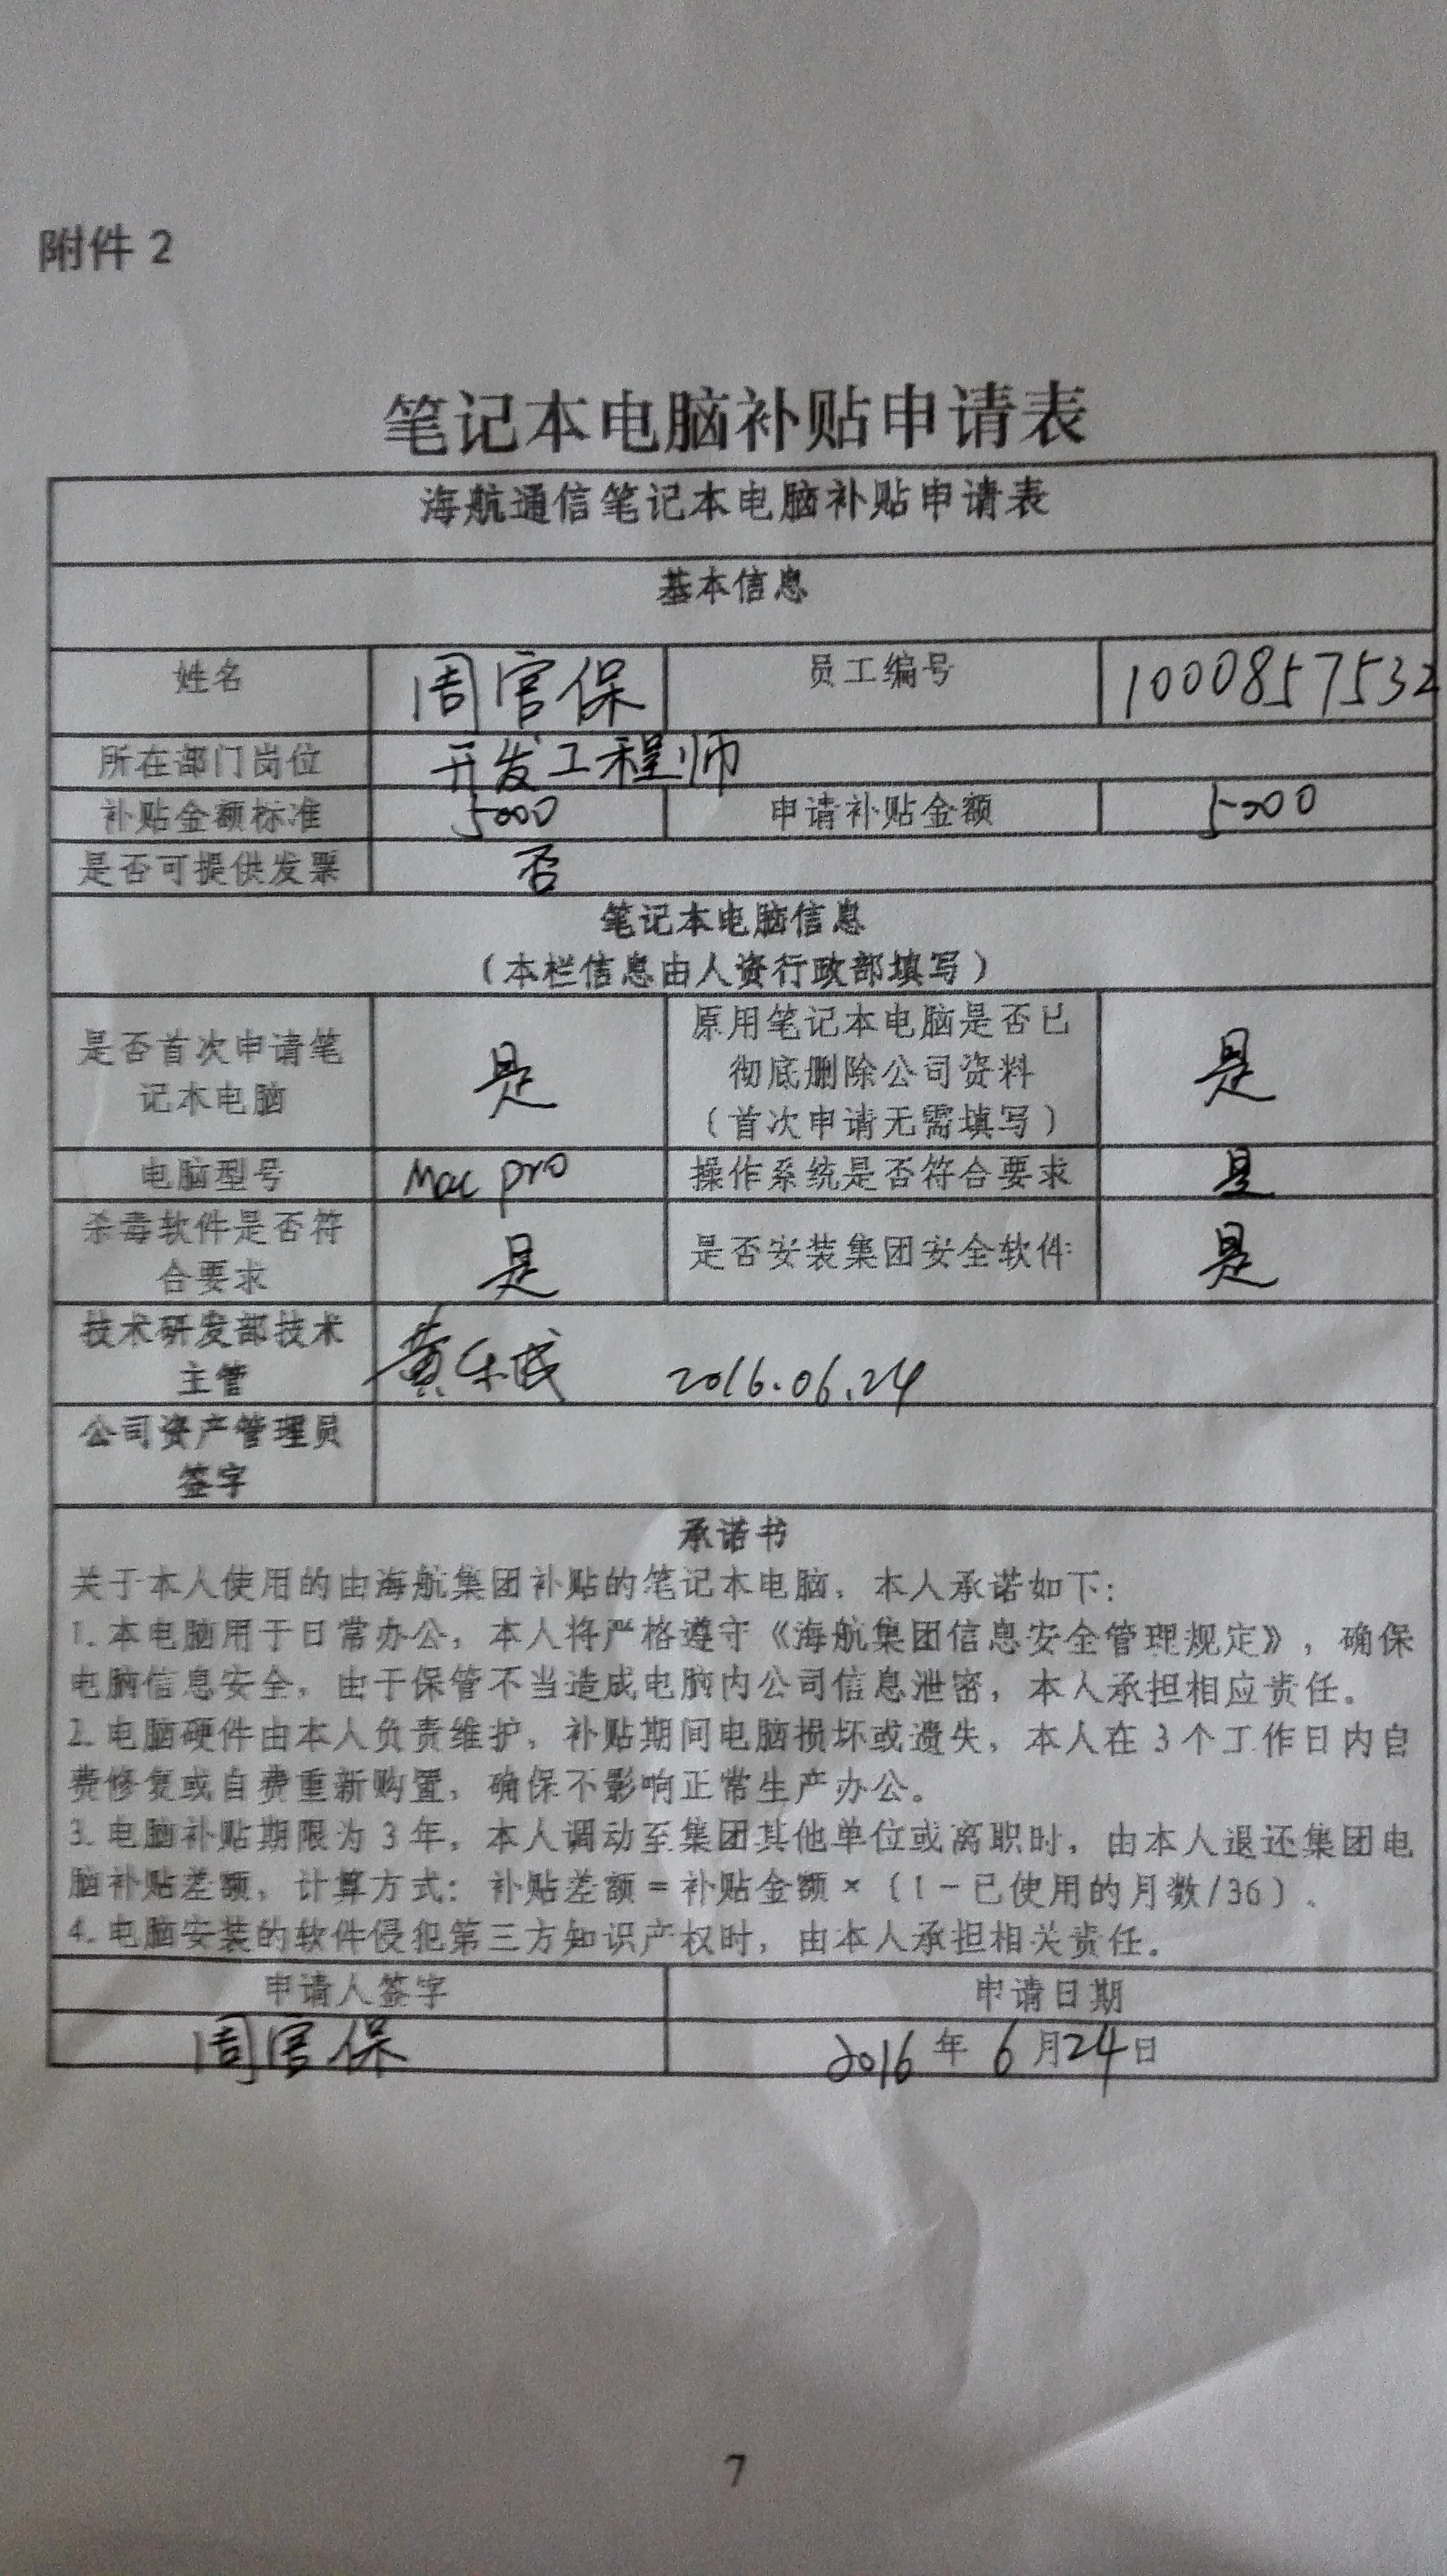 附件 2
笔记本电脑补贴申请表
海航通信笔记本电脑补贴申请表
基本信息
姓名 周官保 员工编号 1000857532
所在部门岗位 开发工程师
补贴金额标准 5000 申请补贴金额 5000
是否可提供发票 否
笔记本电脑信息
（本栏信息由人资行政部填写）
是否首次申请笔
记本电脑
是
原用笔记本电脑是否已
彻底删除公司资料
（首次申请无需填写）
是
电脑型号 Mac pro 操作系统是否符合要求 是
杀毒软件是否符
合要求
是
是否安装集团安全软件
是
技术研发部技术
主管
黄 2016.06.24
公司资产管理员
签字
承诺书
关于本人使用的由海航集团补贴的笔记本电脑，本人承诺如下：
1. 本电脑用于日常办公，本人将严格遵守《海航集团信息安全管理规定》，确保
电脑信息安全，由于保管不当造成电脑内公司信息泄密，本人承担相应责任。
2. 电脑硬件由本人负责维护，补贴期间电脑损坏或遗失，本人在 3 个工作日内自
费修复或自费重新购置，确保不影响正常生产办公。
3. 电脑补贴期限为 3 年，本人调动至集团其他单位或离职时，由本人退还集团电
脑补贴差额，计算方式：补贴差额＝补贴金额×（1－已使用的月数/36）。
4. 电脑安装的软件侵犯第三方知识产权时，由本人承担相关责任。
申请人签字 申请日期
周官保 2016 年 6 月 24 日
7